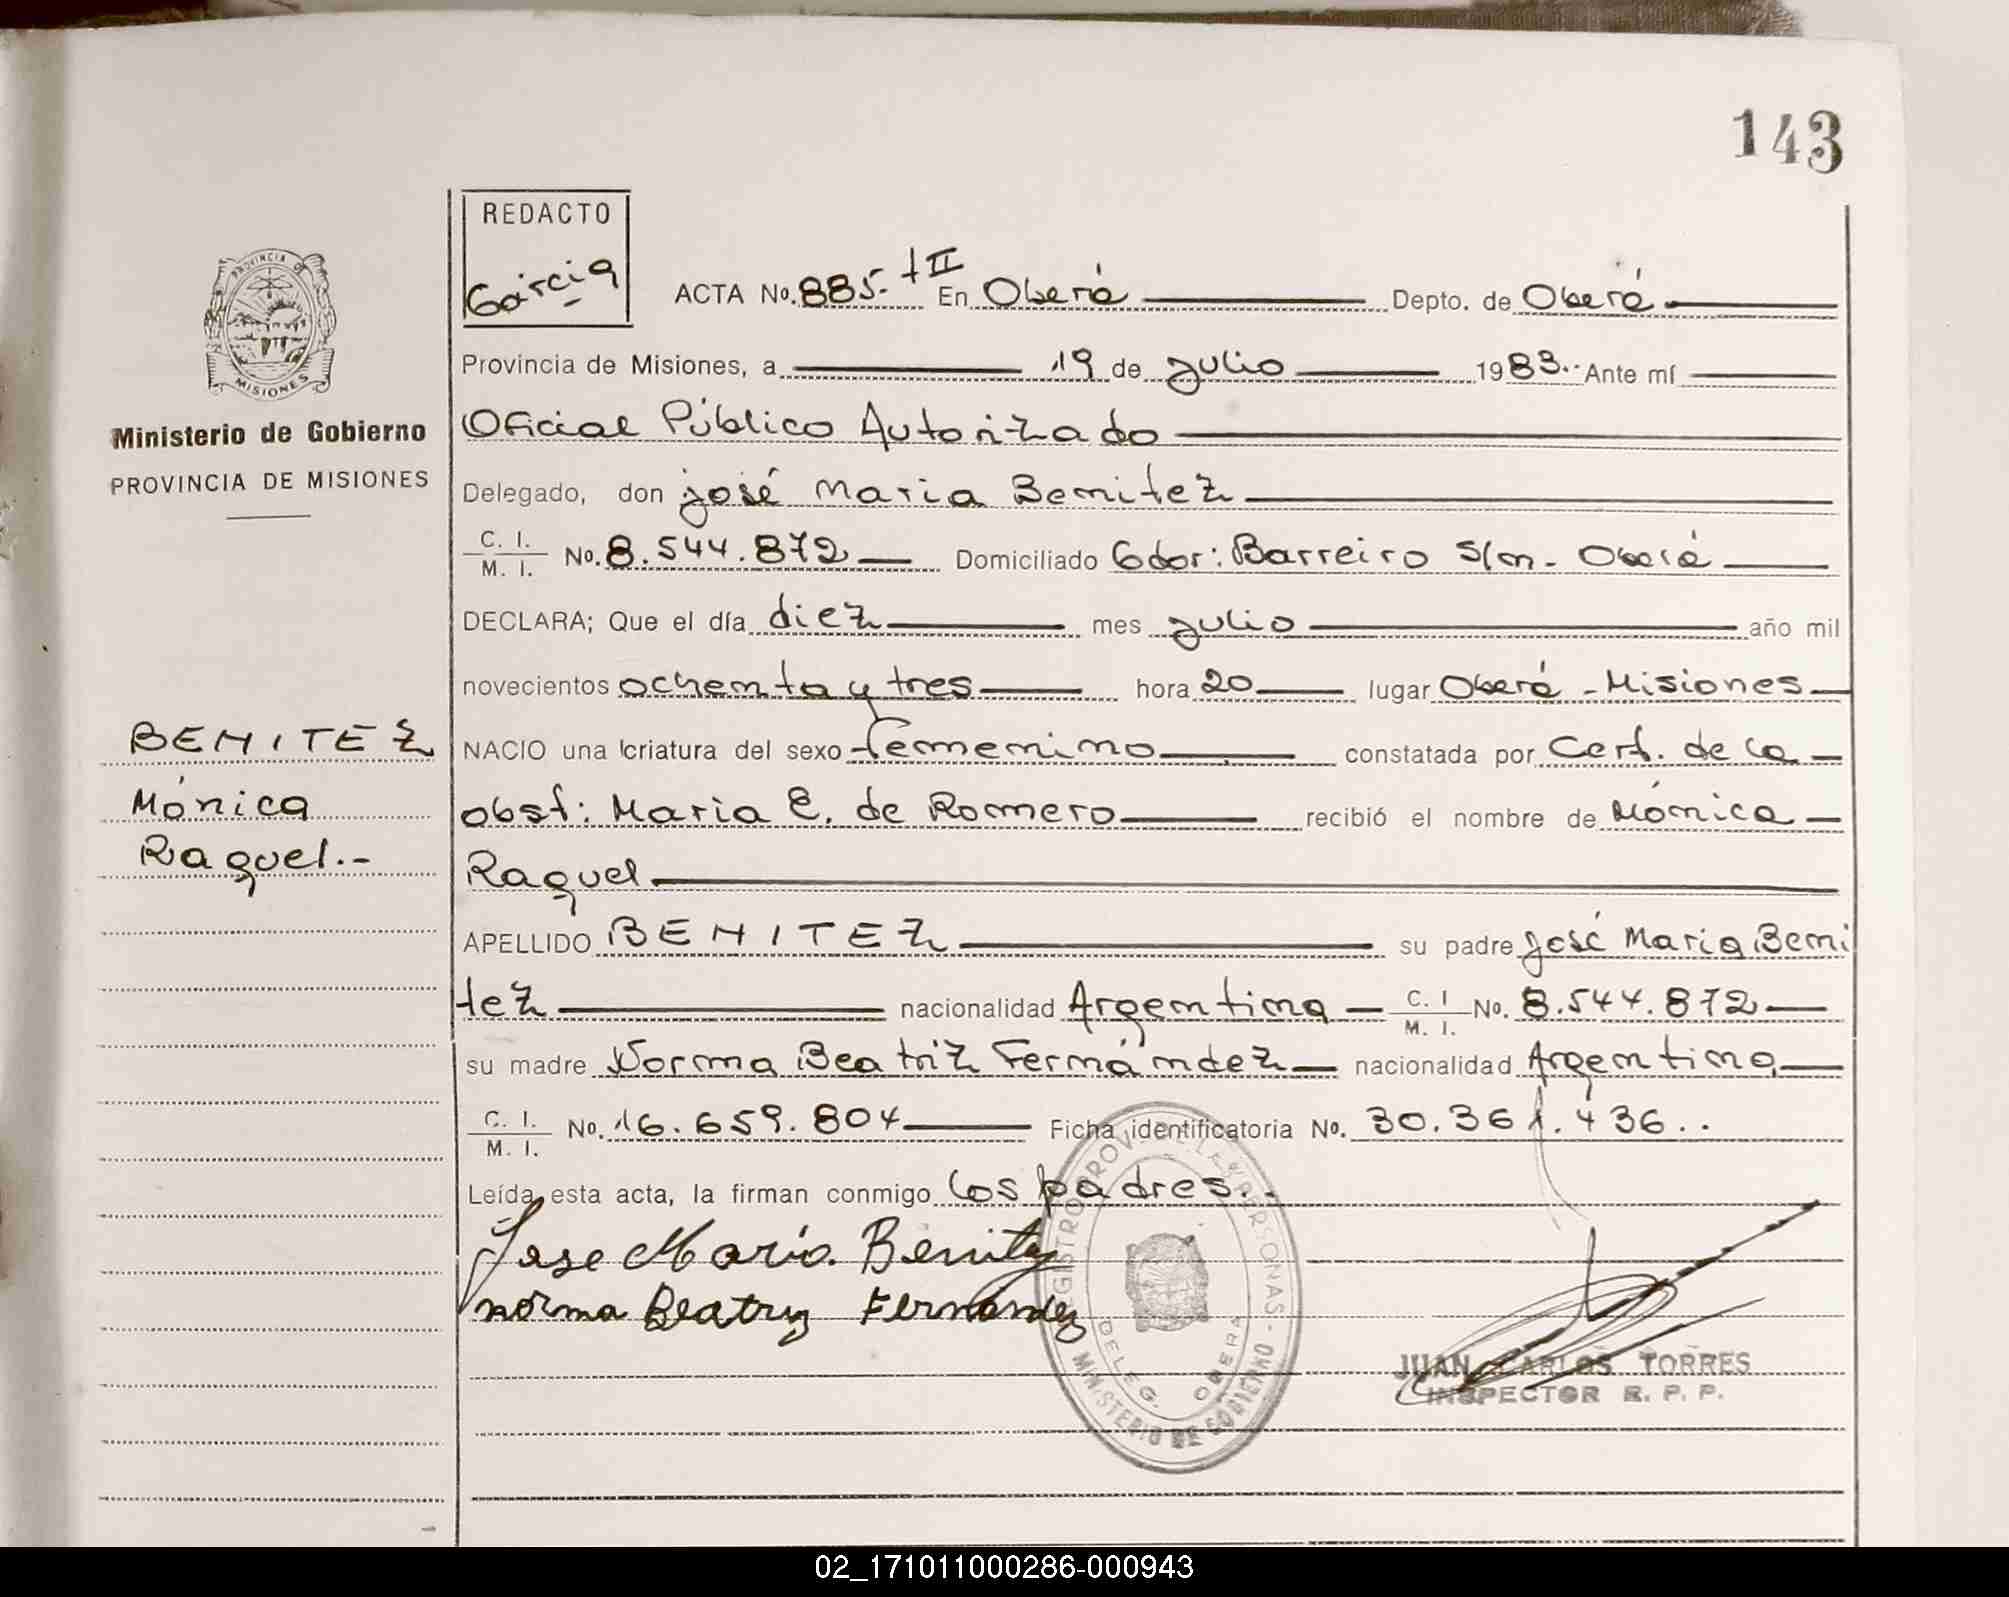 143
REDACTO
Garcia
PROVINCIA DE
MISIONES
Ministerio de Gobierno
PROVINCIA DE MISIONES
ACTA No. 885.- tII En Oberá Depto. de Oberá
Provincia de Misiones, a 19 de Julio 1983.- Ante mí
Oficial Público Autorizado
Delegado, don José Maria Benitez
C. I. / M. I. No. 8.544.872 Domiciliado Gdor: Barreiro S/n - Oberá
DECLARA; Que el día diez mes Julio año mil
novecientos ochenta y tres hora 20 lugar Oberá - Misiones
NACIO una criatura del sexo femenino constatada por Cert. de la
obst: Maria E. de Romero recibió el nombre de Mónica
Raquel
BENITEZ
Mónica
Raquel.-
APELLIDO BENITEZ su padre José Maria Beni
tez nacionalidad Argentina C. I / M. I. No. 8.544.872
su madre Norma Beatriz Fernández nacionalidad Argentina
C. I. / M. I. No. 16.659.804 Ficha identificatoria No. 30.361.436..
Leída esta acta, la firman conmigo los padres..
Jose Maria Benitez
norma Beatriz Fernandez
REGISTRO PROVINCIAL DE LAS PERSONAS - MINISTERIO DE GOBIERNO
DELEG. OBERA
JUAN CARLOS TORRES
INSPECTOR R. P. P.
02_171011000286-000943